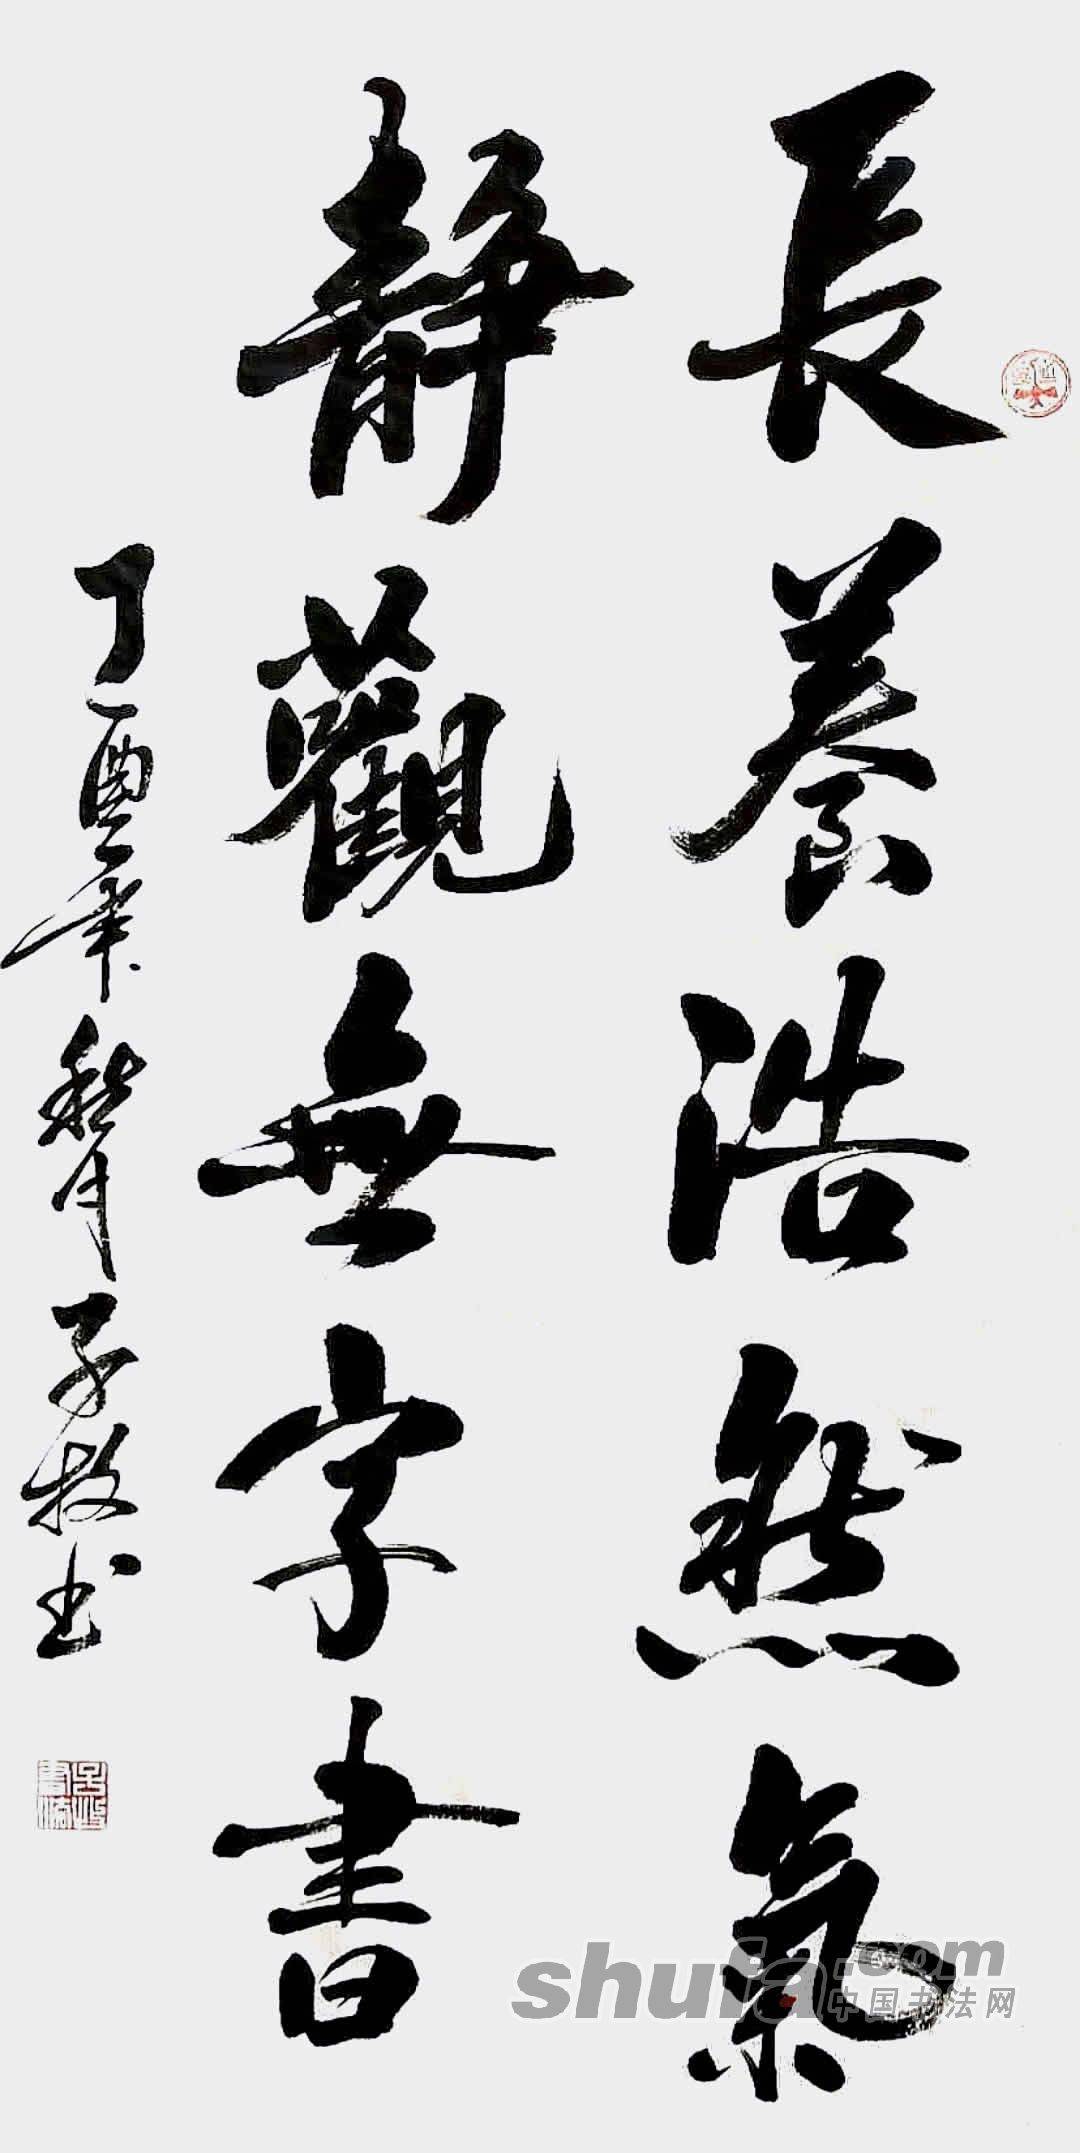 長養浩然氣
靜觀無字書
丁酉年秋月子牧书
shufa.com
中国书法网